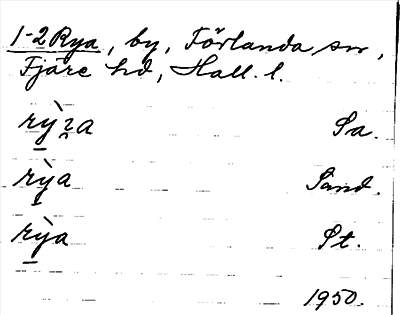 1-2 Rya, by, Förlanda sn,
Fjäre hd, Hall. l.
Sa.
rỳa Sand.
rỳa St.
1950.